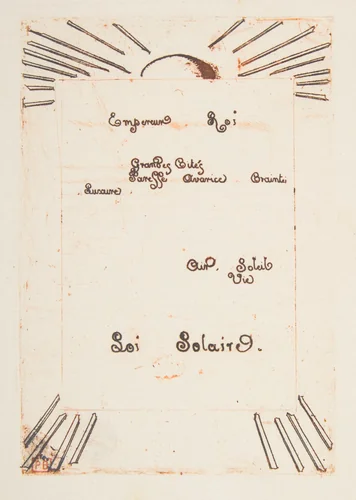 Empereur Roi
Grandes Cités
Paresse Avarice Crainte
Luxure
Air. Soleil
Vie
Loi Solaire.